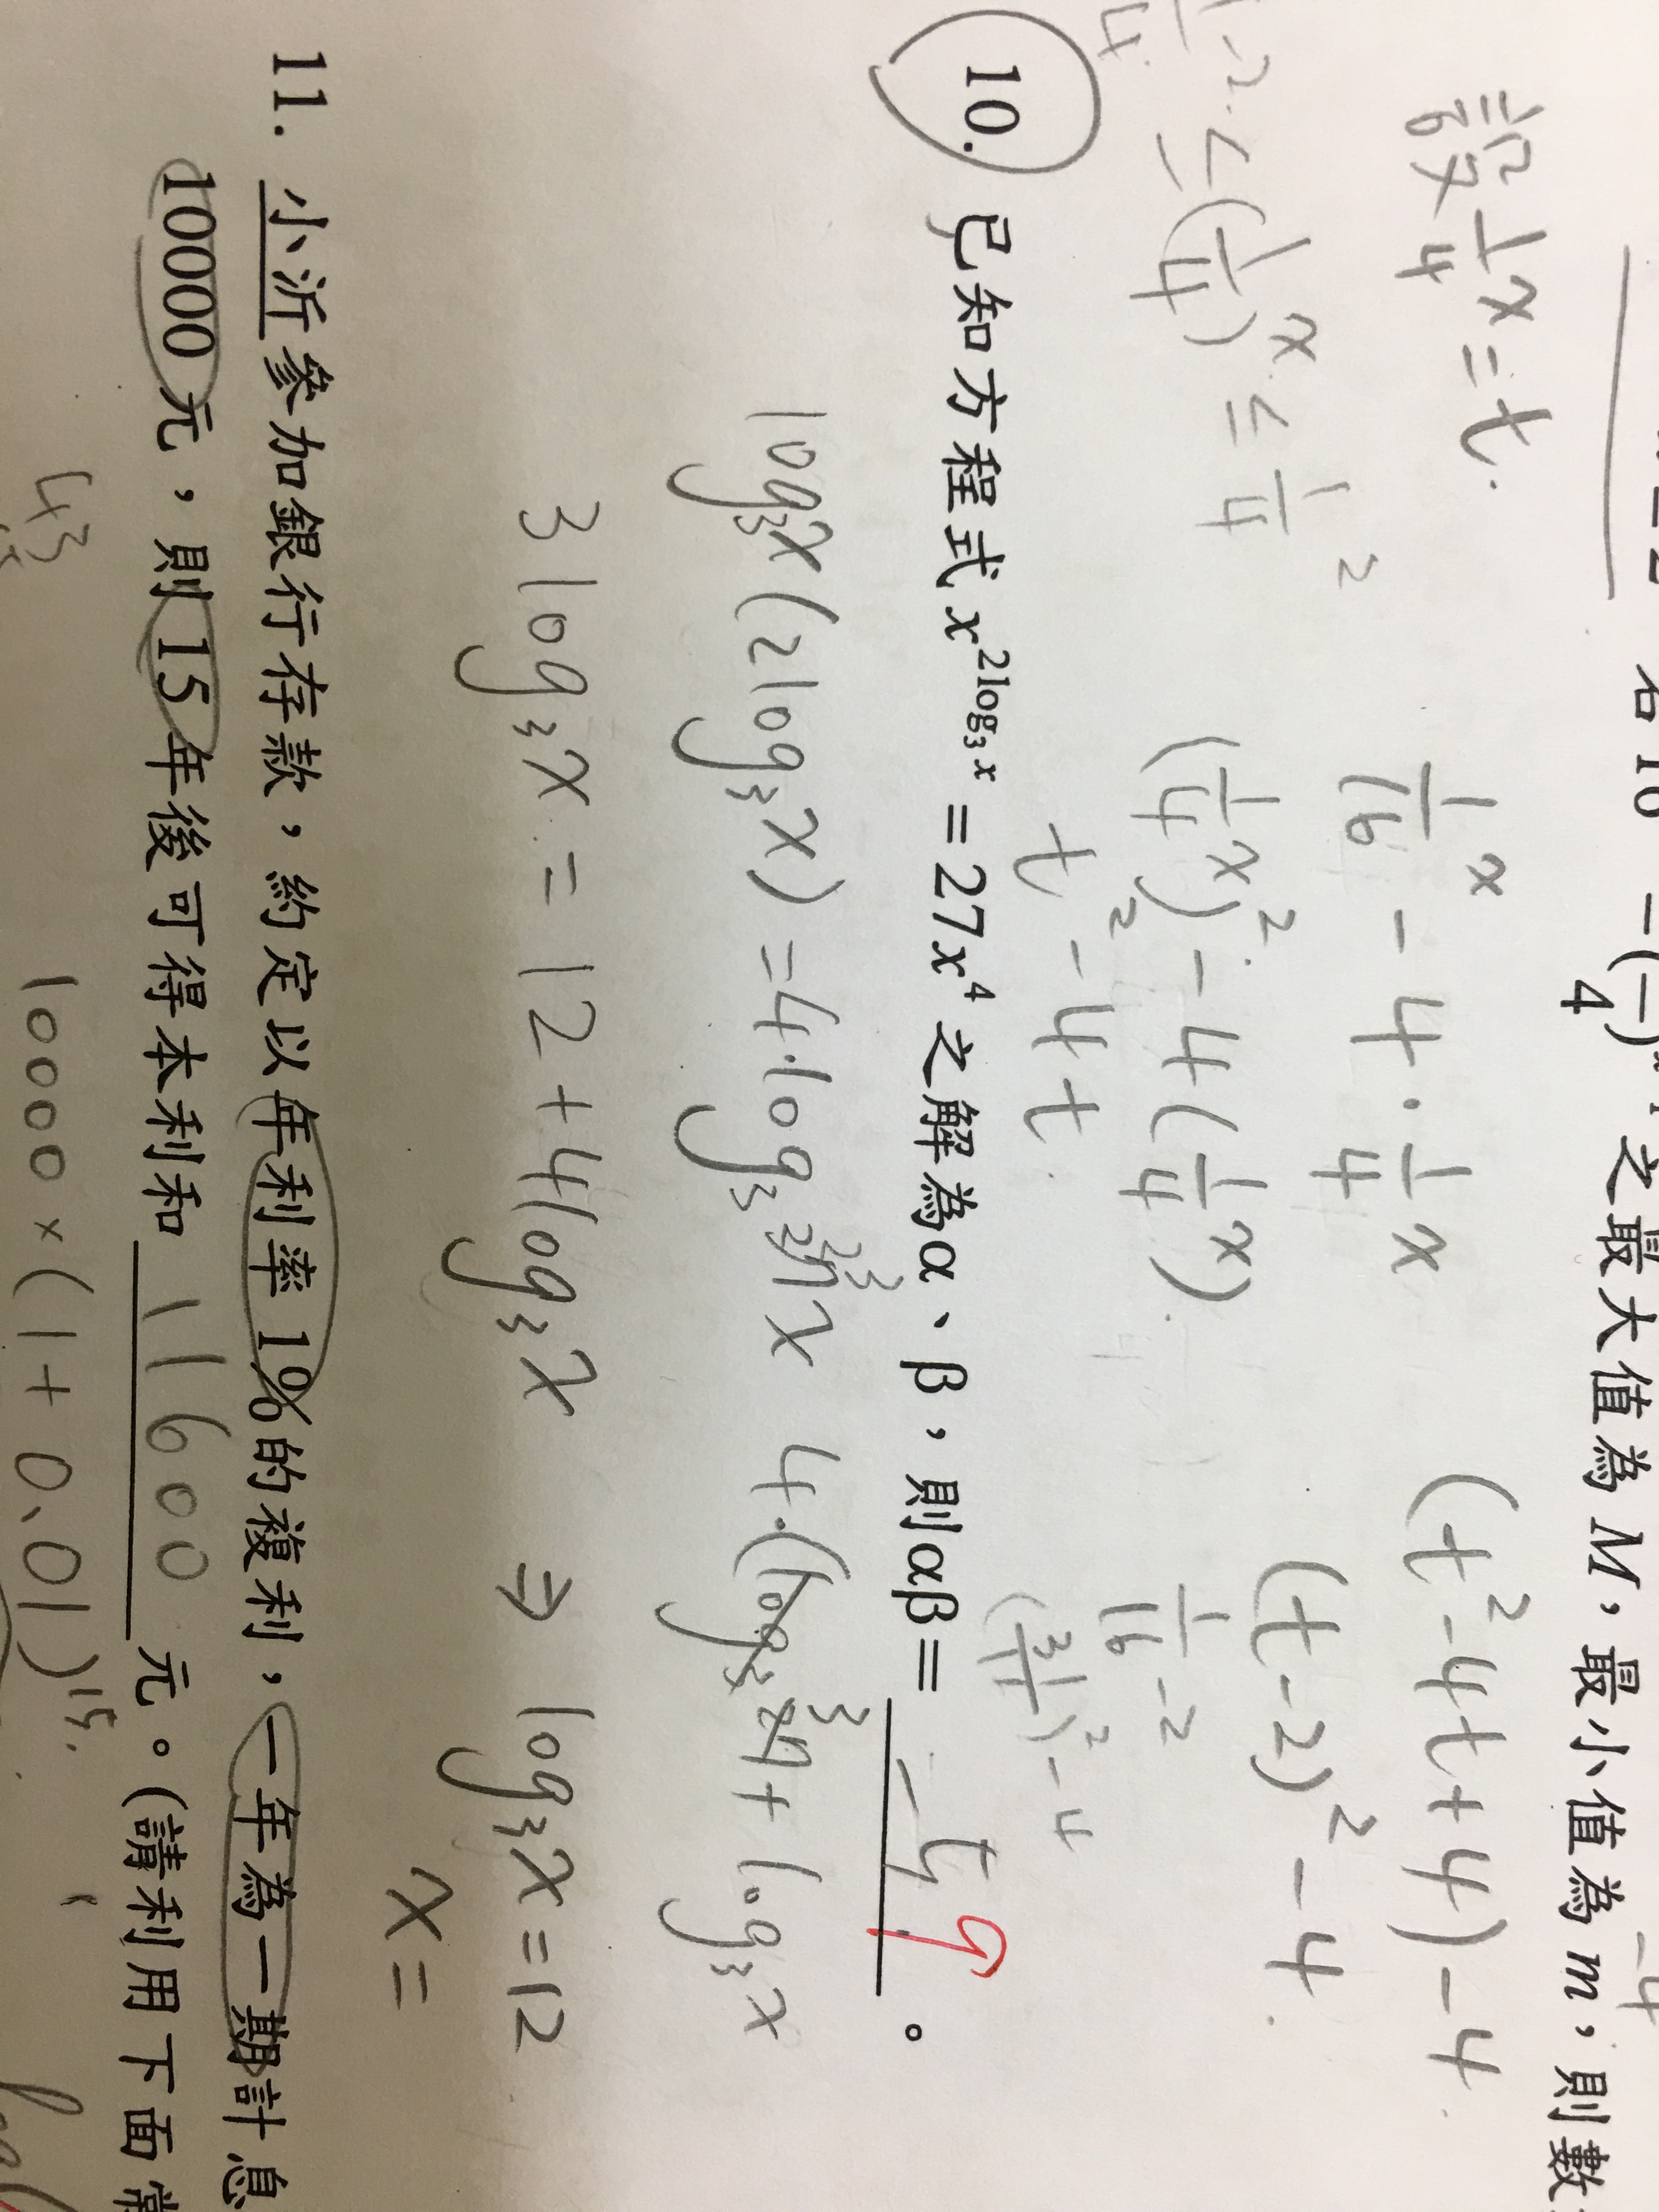 之最大值為 M，最小值為 m，則數
1/4 x = t.
1/16 x - 4 · 1/4 x
(t² - 4t + 4) - 4
(1/4 x)² - 4(1/4 x)
(t - 2)² - 4
t² - 4t
1/16 - 2
10. 已知方程式 x^{2log₃x} = 27x⁴ 之解為α、β，則αβ= 9 。
log₃x(2log₃x) = 4·log₃ x
3log₃x = 12 + 4log₃x ⇒ log₃x = 12
x =
11. 小沂參加銀行存款，約定以年利率 1%的複利，一年為一期計息
10000 元，則 15 年後可得本利和 11600 元。(請利用下面常
10000 × (1 + 0.01)¹⁵